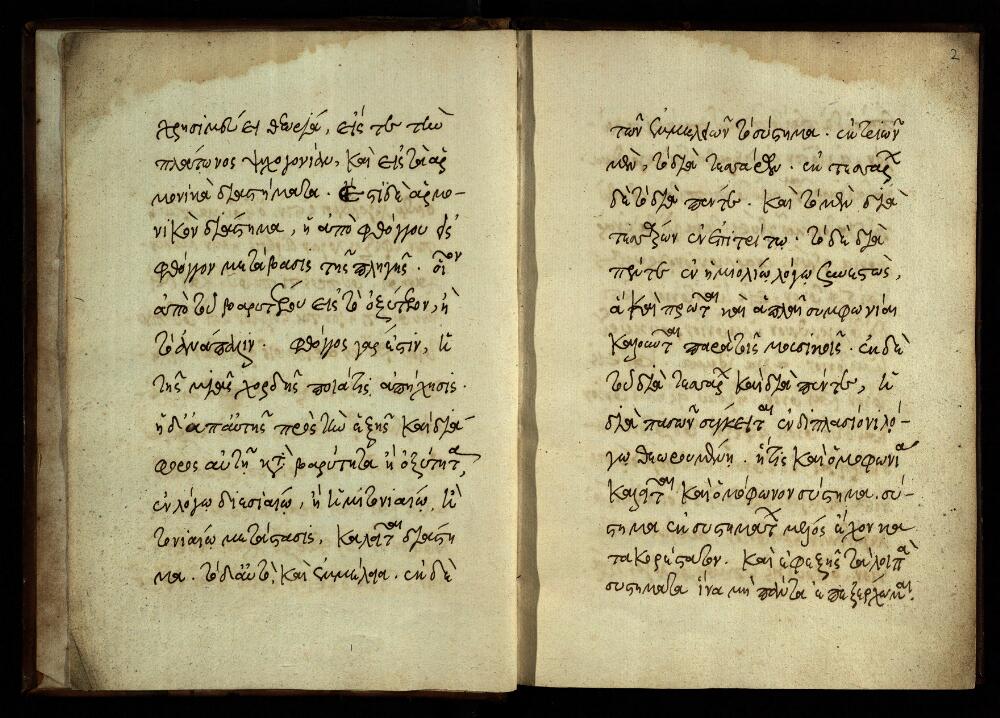 χρησιμεύει θεωρία, εἴς τε τὴν
πλάτωνος ψυχογονίαν, καὶ εἰς τὰ ἁρ
μονικὰ διαστήματα. ἔστι δὲ ἁρμο-
νικὸν διάστημα, ἡ ἀπὸ φθόγγου εἰς
φθόγγον μετάβασις τῆς πληγῆς. οἷον
ἀπὸ τοῦ βαρυτέρου εἰς τὸ ὀξύτερον, ἢ
τὸ ἀνάπαλιν. φθόγγος γάρ ἐστιν, ἡ
τῆς μιᾶς χορδῆς ποιά τις ἀπήχησις.
ἡ δ' ἀπ' αὐτῆς πρὸς τὴν ἑξῆς καὶ διά-
φορος αὐτῇ κατὰ βαρύτητα ἢ ὀξύτητα,
ἐν λόγῳ διεσιαίῳ, ἢ ἡμιτονιαίῳ, ἢ
τονιαίῳ μετάστασις, καλεῖται διάστη
μα. τὸ δ' αὐτὸ, καὶ ἐμμέλεια. ἐκ δὲ
2
τῶν ἐμμελειῶν τὸ σύστημα. ἐκ τριῶν
μὲν, τὸ διὰ τεσσάρων. ἐκ τεσσάρων
δὲ τὸ διὰ πέντε. καὶ τὸ μὲν διὰ
τεσσάρων ἐν ἐπιτρίτῳ. τὸ δὲ διὰ
πέντε ἐν ἡμιολίῳ λόγῳ συνεστὼς,
ἃ καὶ πρῶται καὶ ἁπλαῖ συμφωνίαι
καλοῦνται παρὰ τοῖς μουσικοῖς. ἐκ δὲ
τοῦ διὰ τεσσάρων καὶ διὰ πέντε, ἡ
διὰ πασῶν σύγκειται ἐν διπλασίονι λό-
γῳ θεωρουμένη. ἥτις καὶ ὁμοφωνία
καλεῖται καὶ ὁμόφωνον σύστημα. σύ-
στημα ἐκ συστημάτων μέλος ἔχον κα
τακορέστατον. καὶ ἐφεξῆς τὰ λοιπὰ
συστήματα ἵνα μὴ πάντα ἐπεξέρχωμαι.